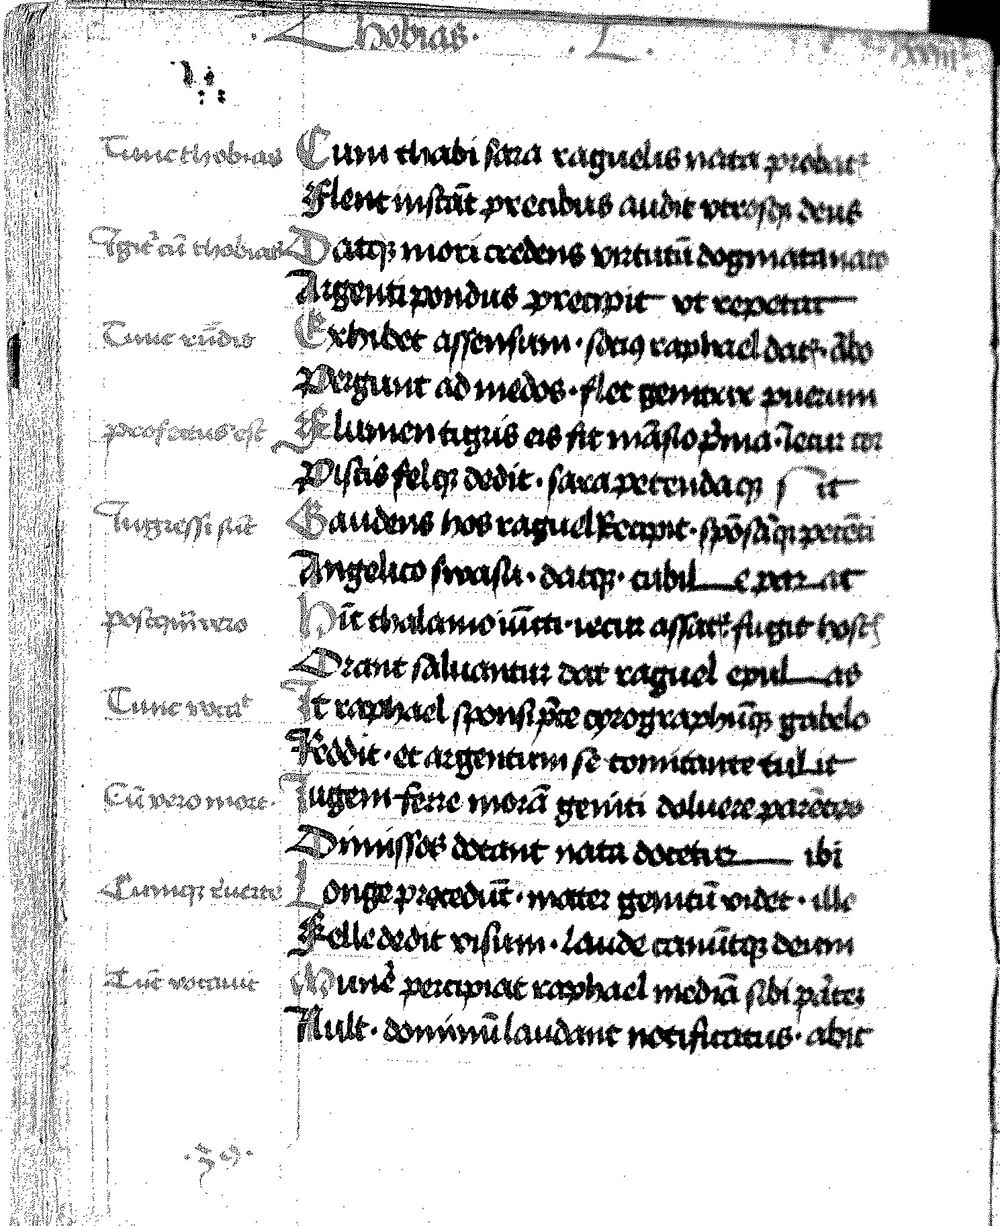 Thobias · L ·
Tunc thobias Cum thabi sara raguelis nata probat᷑
Flent instāt precibus audit vtrosqꝫ deus
Igit᷑ cū thobias Datqꝫ mori credens virtutū dogmata nato
Argenti pondus precipit vt repetat
Tunc rūdis Exhibet assensum · raphael dat᷑ ·
Pergunt ad medos · flet genitrix puerum
profectus est Flumen tigris eis fit
Piscis felqꝫ dedit · sara petenda qꝫ sit
Ingressi sūt Gaudens hos raguel Recipit · spōsāqꝫ petēti
Angelico suasu · datqꝫ · cubile parat
postquā vero Hīc thalamo iūcti · iecur fugit hostis
Orant saluantur dat raguel epulas
Tunc vocat It raphael sponsi p̄ce cyrographūqꝫ gabelo
Reddit · et argentum se comitante tulit
Cū vero more · Iugem ferre morā geniti doluere parētes
Dimissos docent nata docetur ibi
Cumqꝫ Longe procedūt · mater genitū videt · ille
Felle dedit visum · laude canūtqꝫ deum
Tūc vocauit percipiat raphael mediā sibi
Nult · dominū laudant notificatus · abit